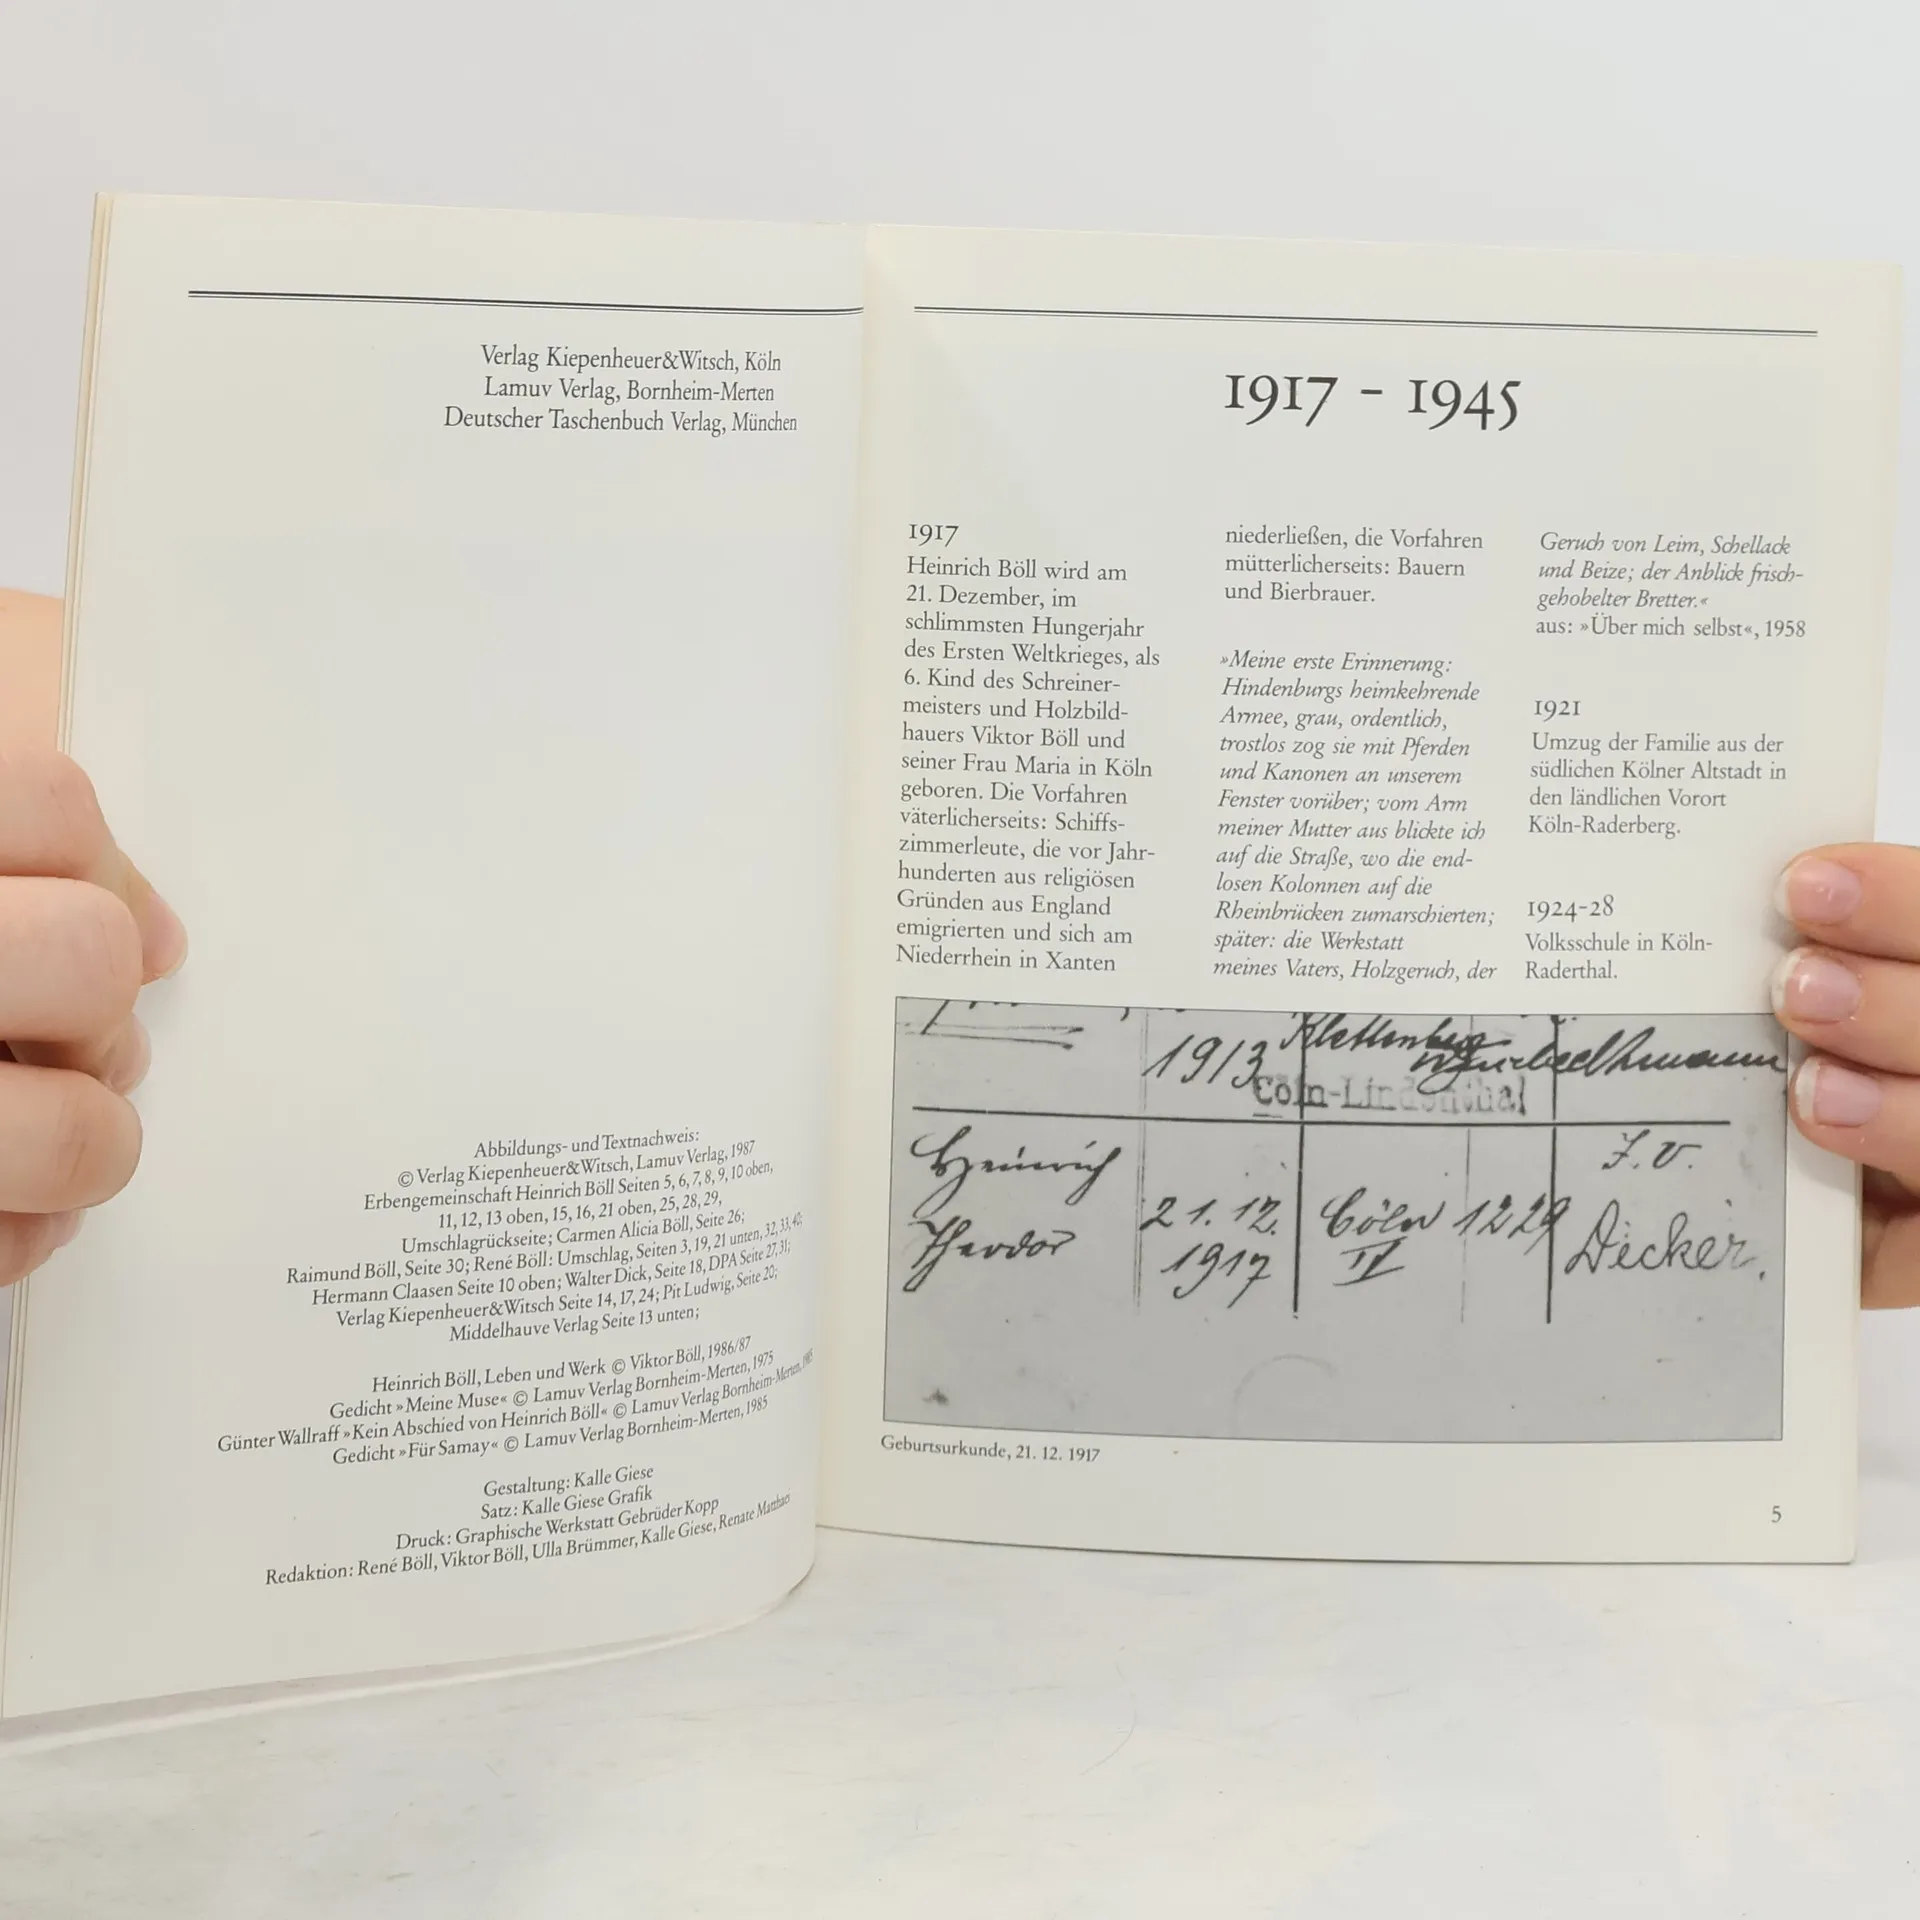 Verlag Kiepenheuer&Witsch, Köln
Lamuv Verlag, Bornheim-Merten
Deutscher Taschenbuch Verlag, München
Abbildungs- und Textnachweis:
© Verlag Kiepenheuer&Witsch, Lamuv Verlag, 1987
Erbengemeinschaft Heinrich Böll Seiten 5, 6, 7, 8, 9, 10 oben,
11, 12, 13 oben, 15, 16, 21 oben, 25, 28, 29,
Umschlagrückseite; Carmen Alicia Böll, Seite 26;
Raimund Böll, Seite 30; René Böll: Umschlag, Seiten 3, 19, 21 unten, 32, 33, 40;
Hermann Claasen Seite 10 oben; Walter Dick, Seite 18, DPA Seite 27, 31;
Verlag Kiepenheuer&Witsch Seite 14, 17, 24; Pit Ludwig, Seite 20;
Middelhauve Verlag Seite 13 unten;
Heinrich Böll, Leben und Werk © Viktor Böll, 1986/87
Gedicht »Meine Muse« © Lamuv Verlag Bornheim-Merten, 1975
Günter Wallraff »Kein Abschied von Heinrich Böll« © Lamuv Verlag Bornheim-Merten, 1985
Gedicht »Für Samay« © Lamuv Verlag Bornheim-Merten, 1985
Gestaltung: Kalle Giese
Satz: Kalle Giese Grafik
Druck: Graphische Werkstatt Gebrüder Kopp
Redaktion: René Böll, Viktor Böll, Ulla Brümmer, Kalle Giese, Renate Matthaei
1917 - 1945
1917
Heinrich Böll wird am
21. Dezember, im
schlimmsten Hungerjahr
des Ersten Weltkrieges, als
6. Kind des Schreiner-
meisters und Holzbild-
hauers Viktor Böll und
seiner Frau Maria in Köln
geboren. Die Vorfahren
väterlicherseits: Schiffs-
zimmerleute, die vor Jahr-
hunderten aus religiösen
Gründen aus England
emigrierten und sich am
Niederrhein in Xanten
niederließen, die Vorfahren
mütterlicherseits: Bauern
und Bierbrauer.
»Meine erste Erinnerung:
Hindenburgs heimkehrende
Armee, grau, ordentlich,
trostlos zog sie mit Pferden
und Kanonen an unserem
Fenster vorüber; vom Arm
meiner Mutter aus blickte ich
auf die Straße, wo die end-
losen Kolonnen auf die
Rheinbrücken zumarschierten;
später: die Werkstatt
meines Vaters, Holzgeruch, der
Geruch von Leim, Schellack
und Beize; der Anblick frisch-
gehobelter Bretter.«
aus: »Über mich selbst«, 1958
1921
Umzug der Familie aus der
südlichen Kölner Altstadt in
den ländlichen Vorort
Köln-Raderberg.
1924-28
Volksschule in Köln-
Raderthal.
1913
Cöln-Lindenthal
Heinrich
Theodor
21. 12.
1917
Cöln
IV
1229
J. V.
Decker.
Geburtsurkunde, 21. 12. 1917
5